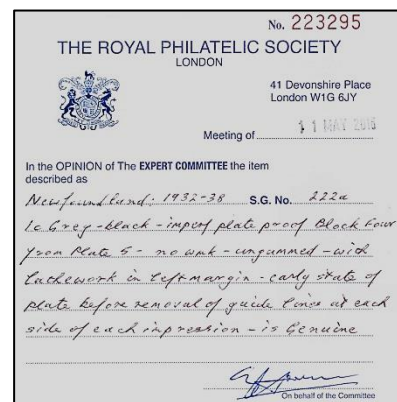 No. 223295
THE ROYAL PHILATELIC SOCIETY
LONDON
41 Devonshire Place
London W1G 6JY
Meeting of 11 MAY 2016
In the OPINION of The EXPERT COMMITTEE the item
described as
Newfoundland: 1932-38 S.G. No. 222a
1c Grey-black - imperf plate proof Block Four
from Plate 5 - no wmk - ungummed - with
lathework in left margin - early state of
plate before removal of guide lines at each
side of each impression - is Genuine
On behalf of the Committee